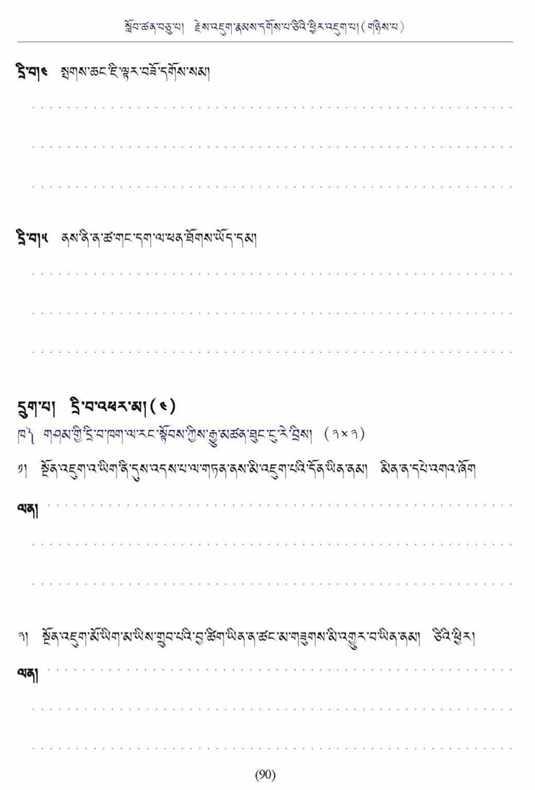 སློབ་ཚན་བཅུ་པ། རྗེས་འཇུག་རྣམས་དགོས་པ་ཅིའི་ཕྱིར་འཇུག་པ། (གཉིས་པ)
དྲི་བ། ༤ སྔགས་ཆང་ཇི་ལྟར་བཟོ་དགོས་སམ།
དྲི་བ། ༥ ནས་ནི་ན་ཚ་གང་དག་ལ་ཕན་ཐོགས་ཡོད་དམ།
དྲུག་པ། དྲི་བ་འཕར་མ། (༤)
ཁ༽ གཤམ་གྱི་དྲི་བ་ཁག་ལ་རང་སྟོབས་ཀྱིས་རྒྱུ་མཚན་ཐུང་ངུ་རེ་བྲིས། (༢×༢)
༡། སྔོན་འཇུག་འ་ཡིག་ནི་དུས་འདས་པ་ལ་གཏན་ནས་མི་འཇུག་པའི་དོན་ཡིན་ནམ། མིན་ན་དཔེ་འགའ་ཞོག
ལན།
༢། སྔོན་འཇུག་མོ་ཡིག་མ་ཡིས་གྲུབ་པའི་བྱ་ཚིག་ཡིན་ན་ཚང་མ་གཟུགས་མི་འགྱུར་བ་ཡིན་ནམ། ཅིའི་ཕྱིར།
ལན།
(90)